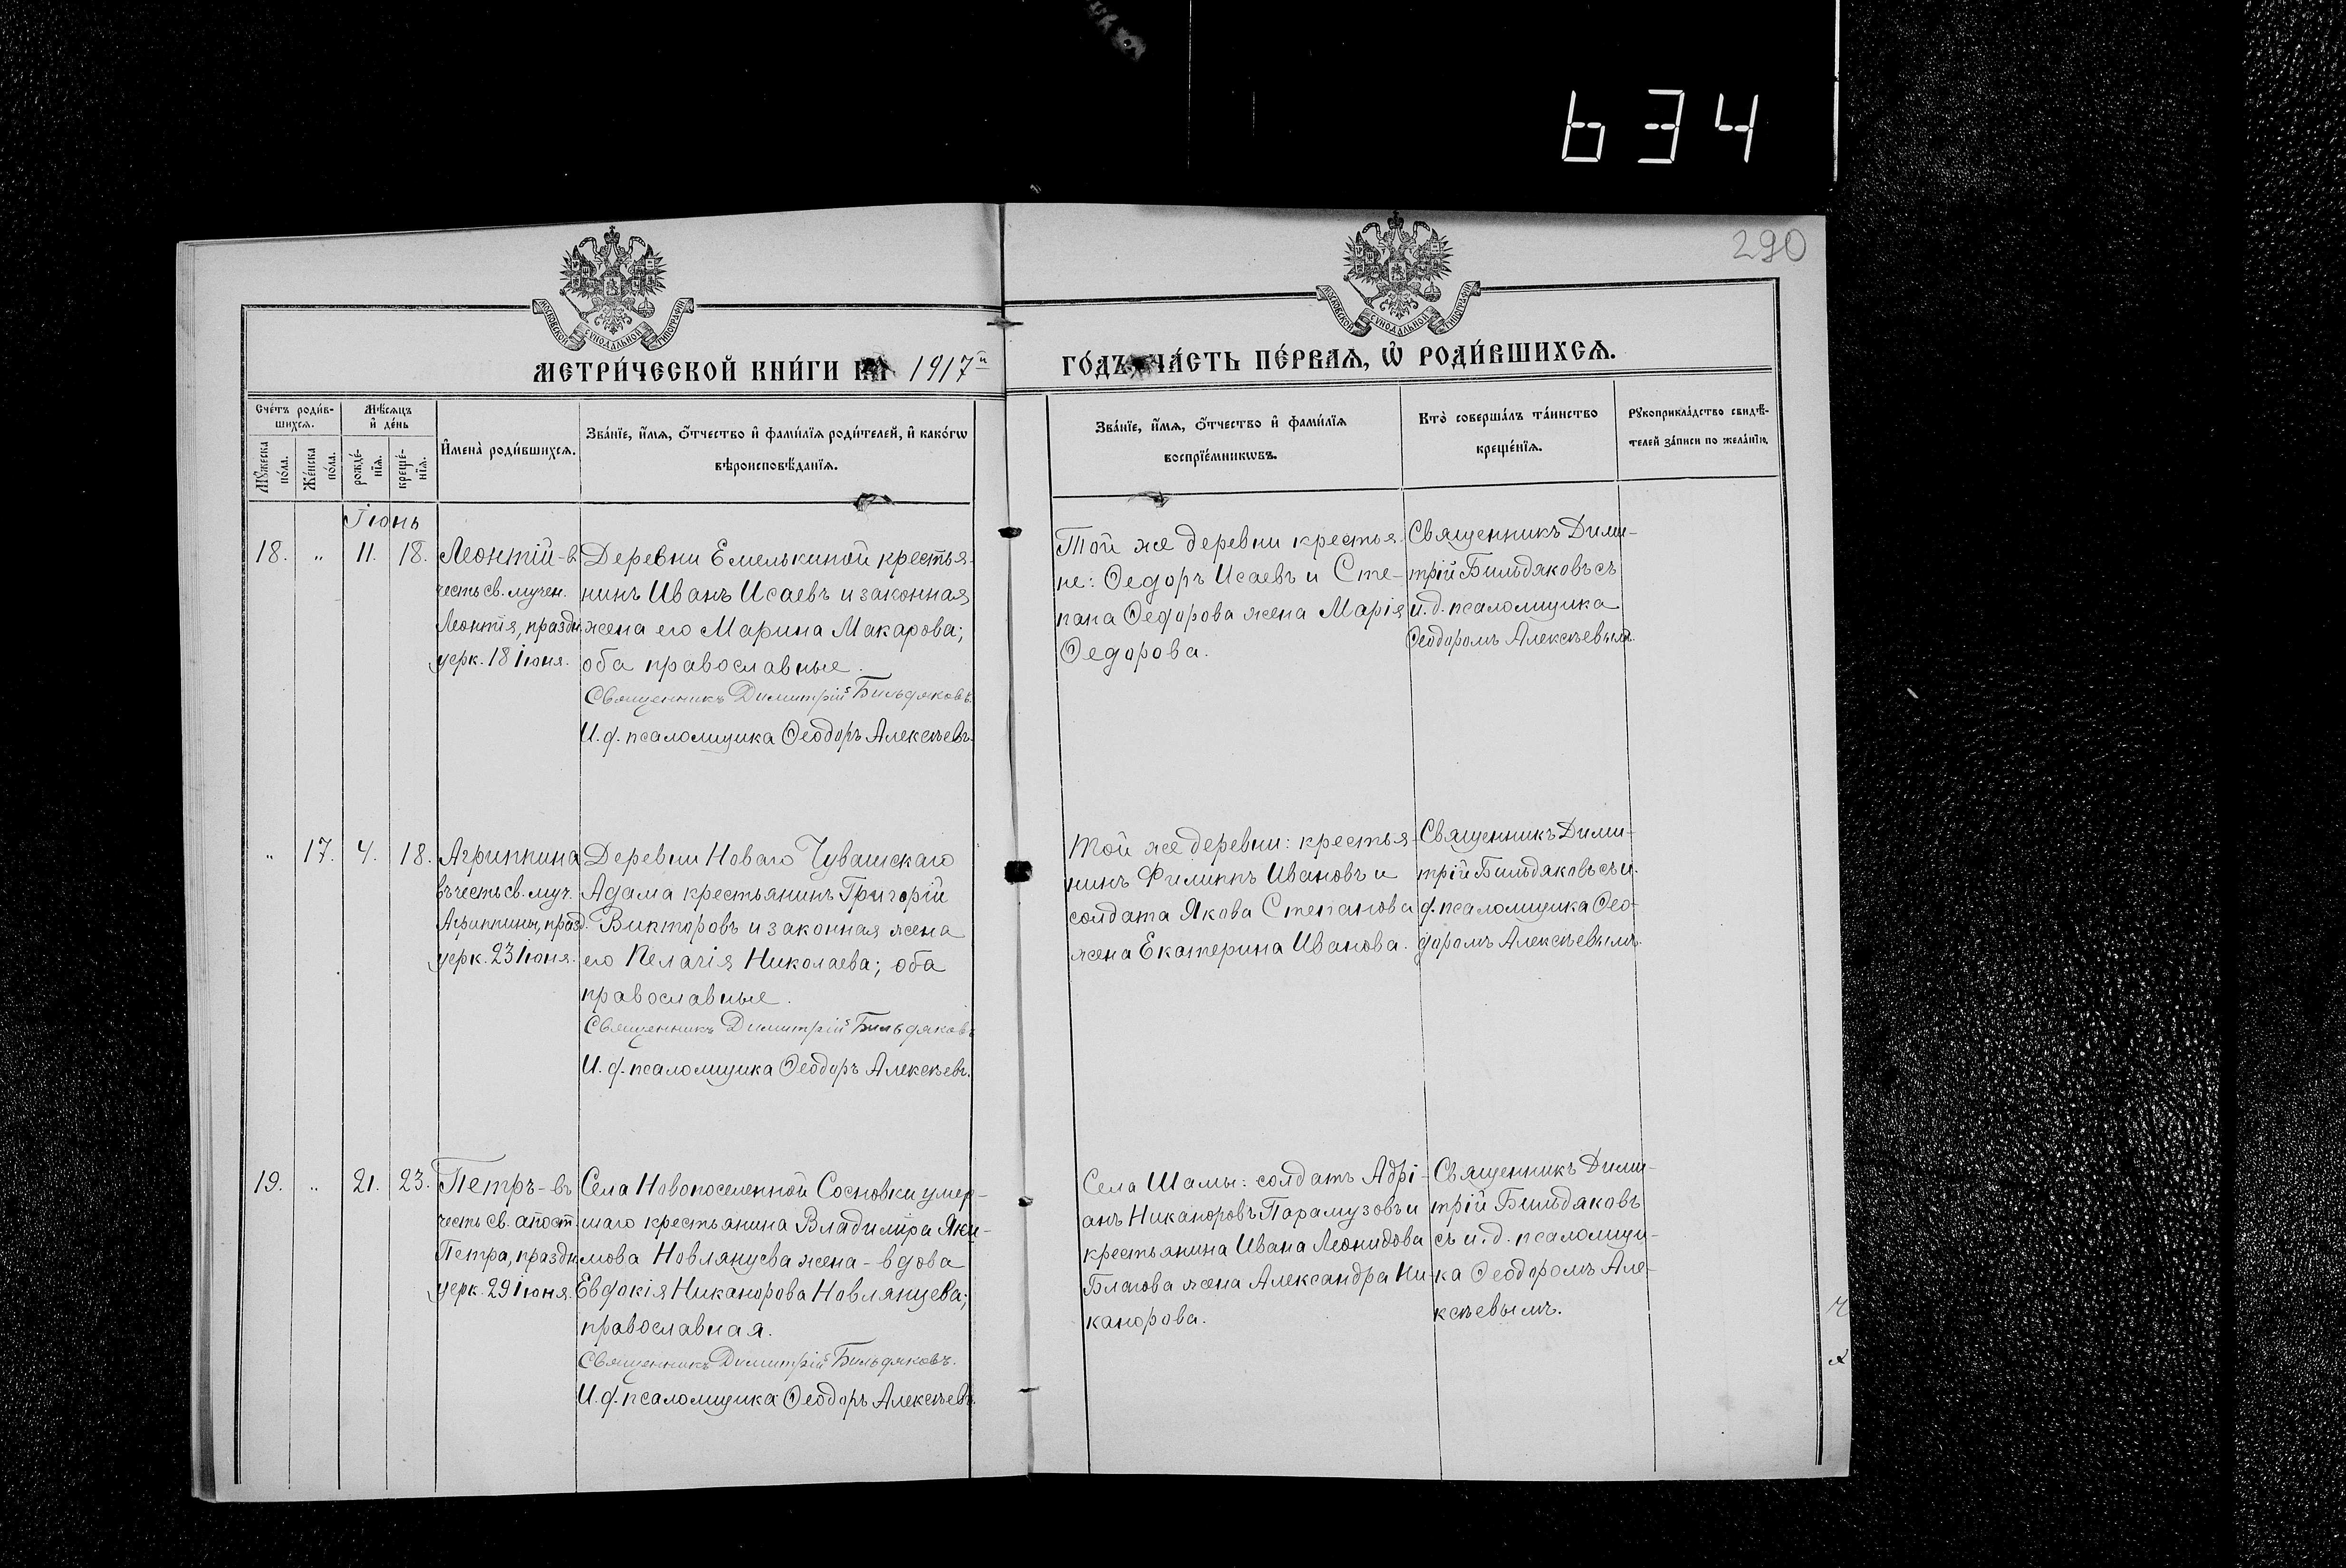 634
290
МОСКОВСКОЙ СѴНОДАЛЬНОЙ ТИПОГРАФІИ
МОСКОВСКОЙ СѴНОДАЛЬНОЙ ТИПОГРАФІИ
МЕТРИ́ЧЕСКОЙ КНИ́ГИ НА 1917й
ГО́ДЪ, ЧА́СТЬ ПЕ́РВАѦ, Ѡ҆ РОДИ́ВШИХСѦ.
Сче́тъ роди́в-
шихсѧ.
Мѣ́сѧцъ
и҆ де́нь
Мꙋ́жеска
по́ла.
Же́нска
по́ла.
рожде́-
нїѧ.
креще́-
нїѧ.
И҆мена̀ роди́вшихсѧ.
Зва́нїе, и҆́мѧ, ѻ҆́тчество и҆ фами́лїѧ роди́телей, и҆ како́гѡ
вѣроисповѣ́данїѧ.
Зва́нїе, и҆́мѧ, ѻ҆́тчество и҆ фами́лїѧ
воспрїе́мникѡвъ.
Кто̀ соверша́лъ та́инство
креще́нїѧ.
Рꙋкоприкла́дство свидѣ́-
телей за́писи по жела́нїю.
Іюнь
18. „ 11. 18.
Леонтій-въ
честь св. мучен.
Леонтія, праздн.
церк. 18 Іюня.
Деревни Емелькиной крестья-
нинъ Иванъ Исаевъ и законная
жена его Марина Макарова;
оба православные.
Священникъ Димитрій Бильдяковъ.
И. д. псаломщика Ѳеодоръ Алексѣевъ.
Той же деревни крестья-
не: Ѳедоръ Исаевъ и Сте-
пана Ѳедорова жена Марія
Ѳедорова.
Священникъ Дими-
трій Бильдяковъ съ
и. д. псаломщика
Ѳеодоромъ Алексѣевымъ.
„ 17. 4. 18.
Агриппина
въ честь св. муч.
Агриппины, празд.
церк. 23 Іюня.
Деревни Новаго Чувашскаго
Адама крестьянинъ Григорій
Викторовъ и законная жена
его Пелагія Николаева; оба
православные.
Священникъ Димитрій Бильдяковъ
И. д. псаломщика Ѳеодоръ Алексѣевъ.
Той же деревни: крестья-
нинъ Филиппъ Ивановъ и
солдата Якова Степанова
жена Екатерина Иванова.
Священникъ Дими-
трій Бильдяковъ съ и.
д. псаломщика Ѳео-
доромъ Алексѣевымъ.
19. „ 21. 23.
Петръ-въ
честь св. апост.
Петра, праздн.
церк. 29 Іюня.
Села Новопоселенной Сосновки умер-
шаго крестьянина Владимира Яки-
мова Новлянцева жена - вдова
Евдокія Никанорова Новлянцева;
православная.
Священникъ Димитрій Бильдяковъ.
И. д. псаломщика Ѳеодоръ Алексѣевъ.
Села Шамы: солдатъ Адрі-
анъ Никаноровъ Парамузовъ и
крестьянина Ивана Леонидова
Благова жена Александра Ни-
канорова.
Священникъ Дими-
трій Бильдяковъ
съ и. д. псаломщи-
ка Ѳеодоромъ Але-
ксѣевымъ.